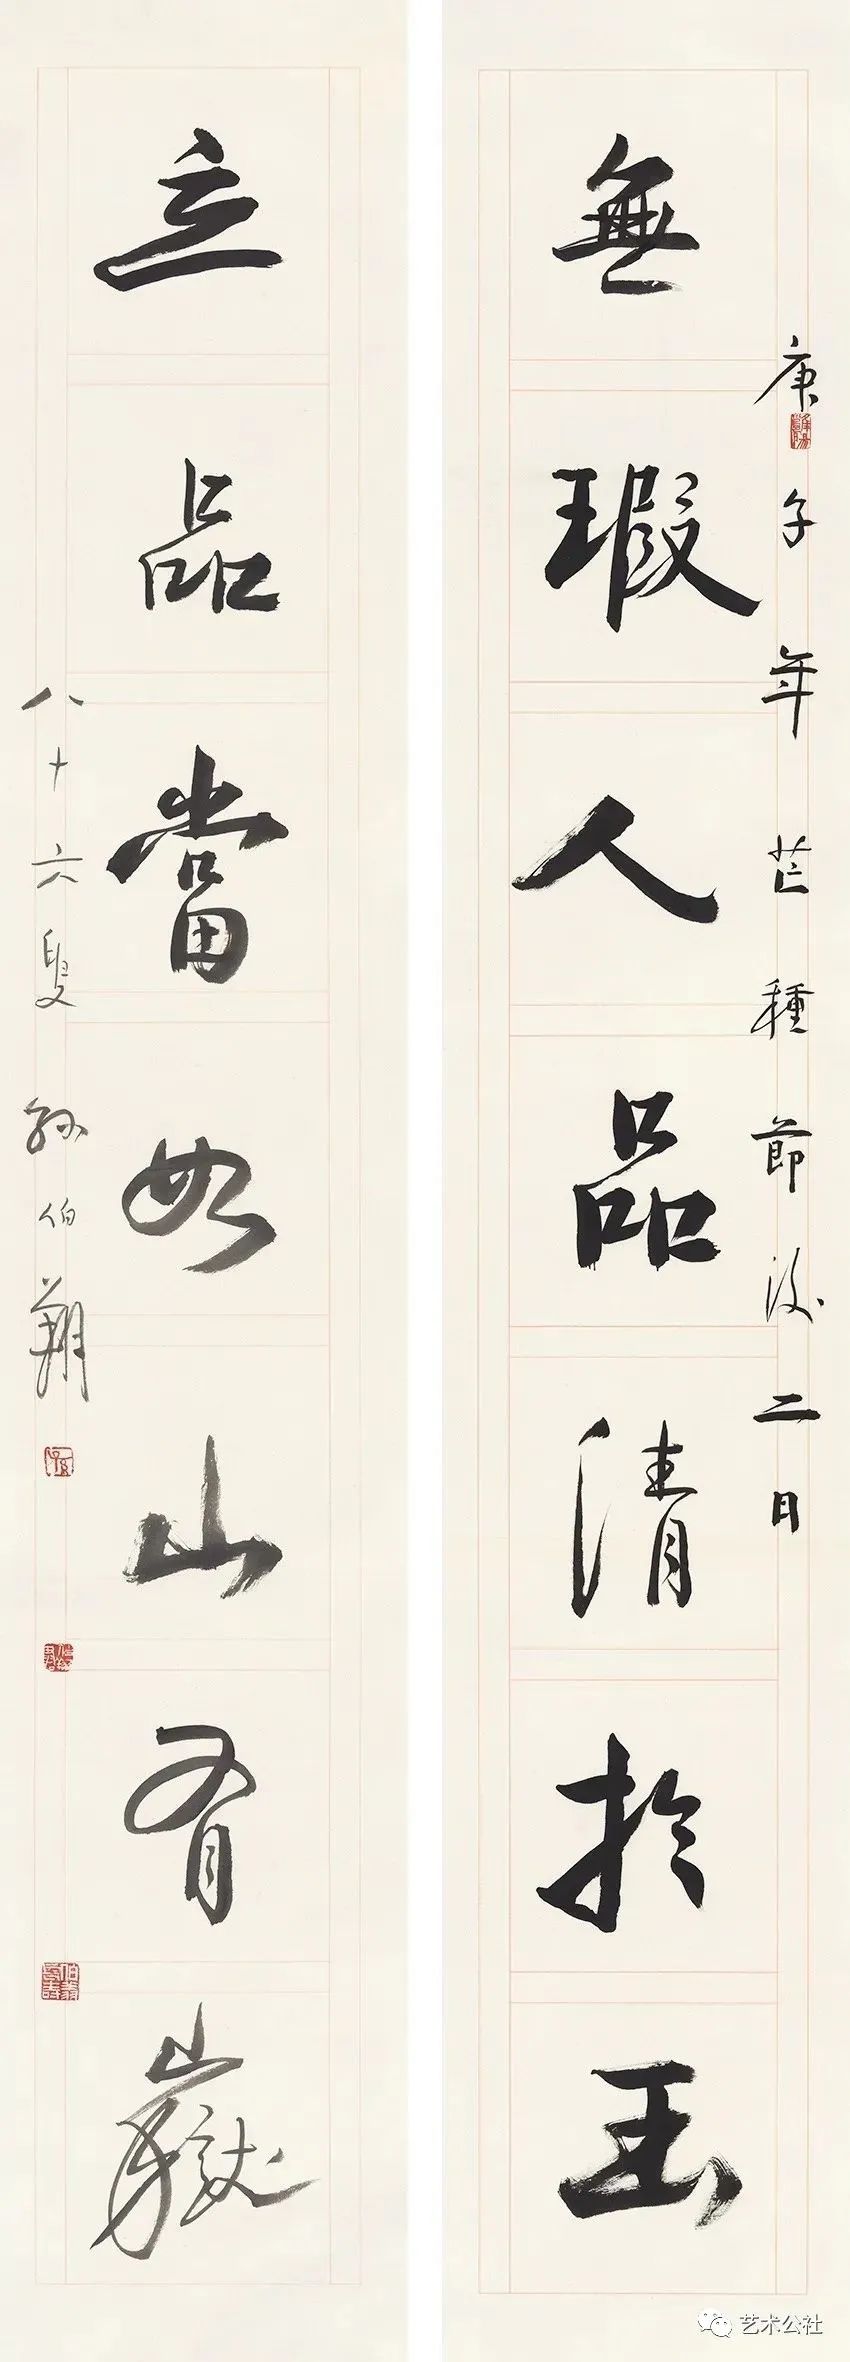 庚子年芒種節後二日
無瑕人品清於玉
立品當如山有嶽
八十六叟孫伯翔
艺术公社